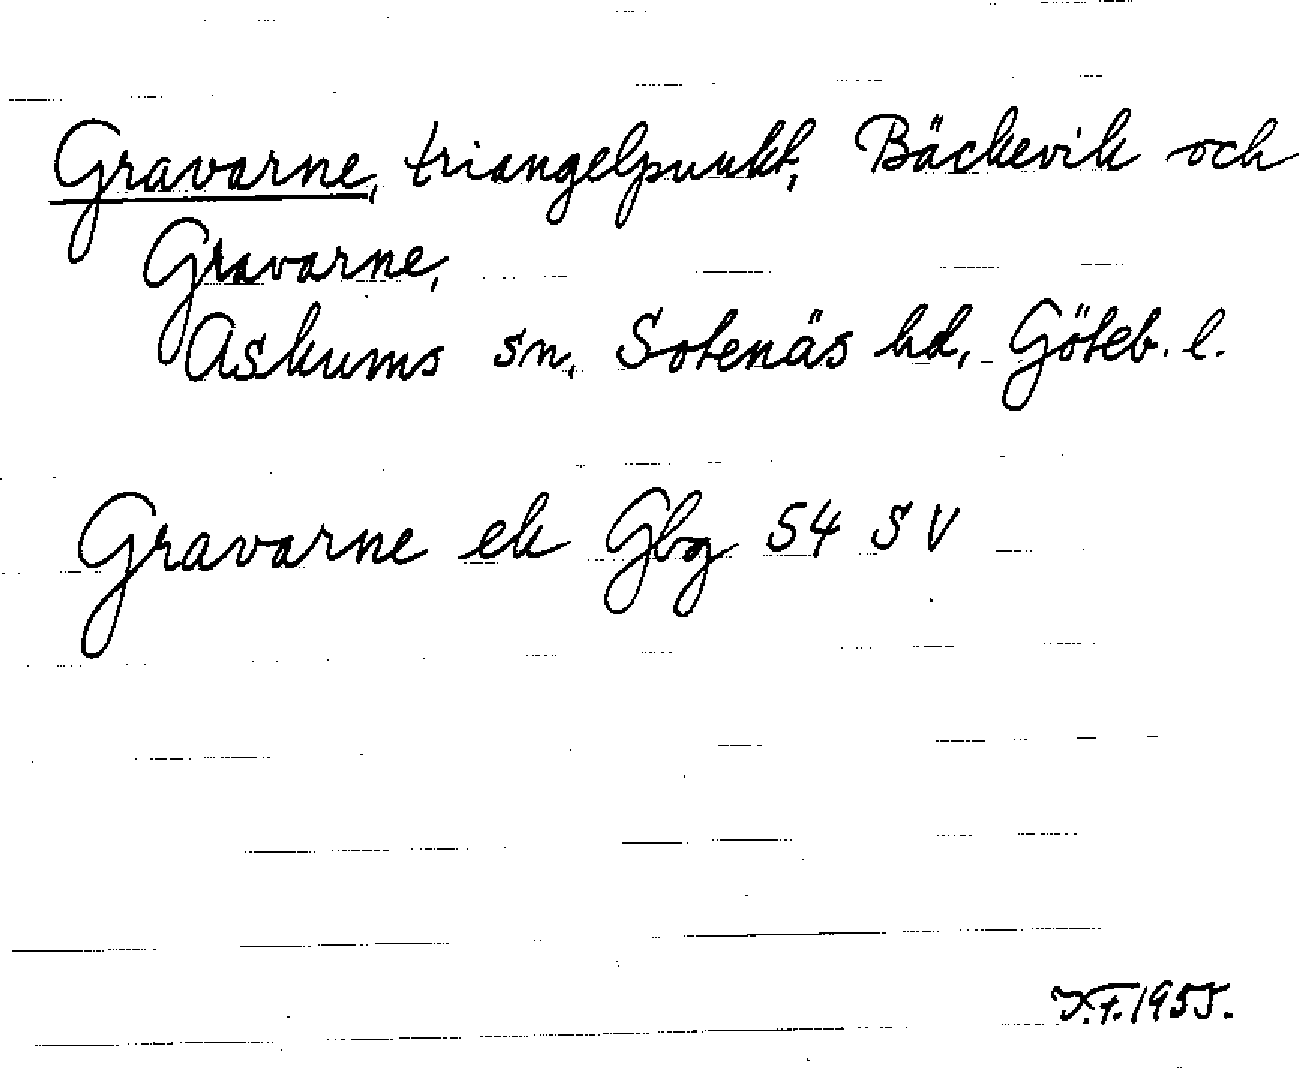 Gravarne, triangelpunkt, Bäckevik och
Gravarne,
Askums sn, Sotenäs hd, Göteb. l.
Gravarne ek Gbg 54 SV
F. 1955.